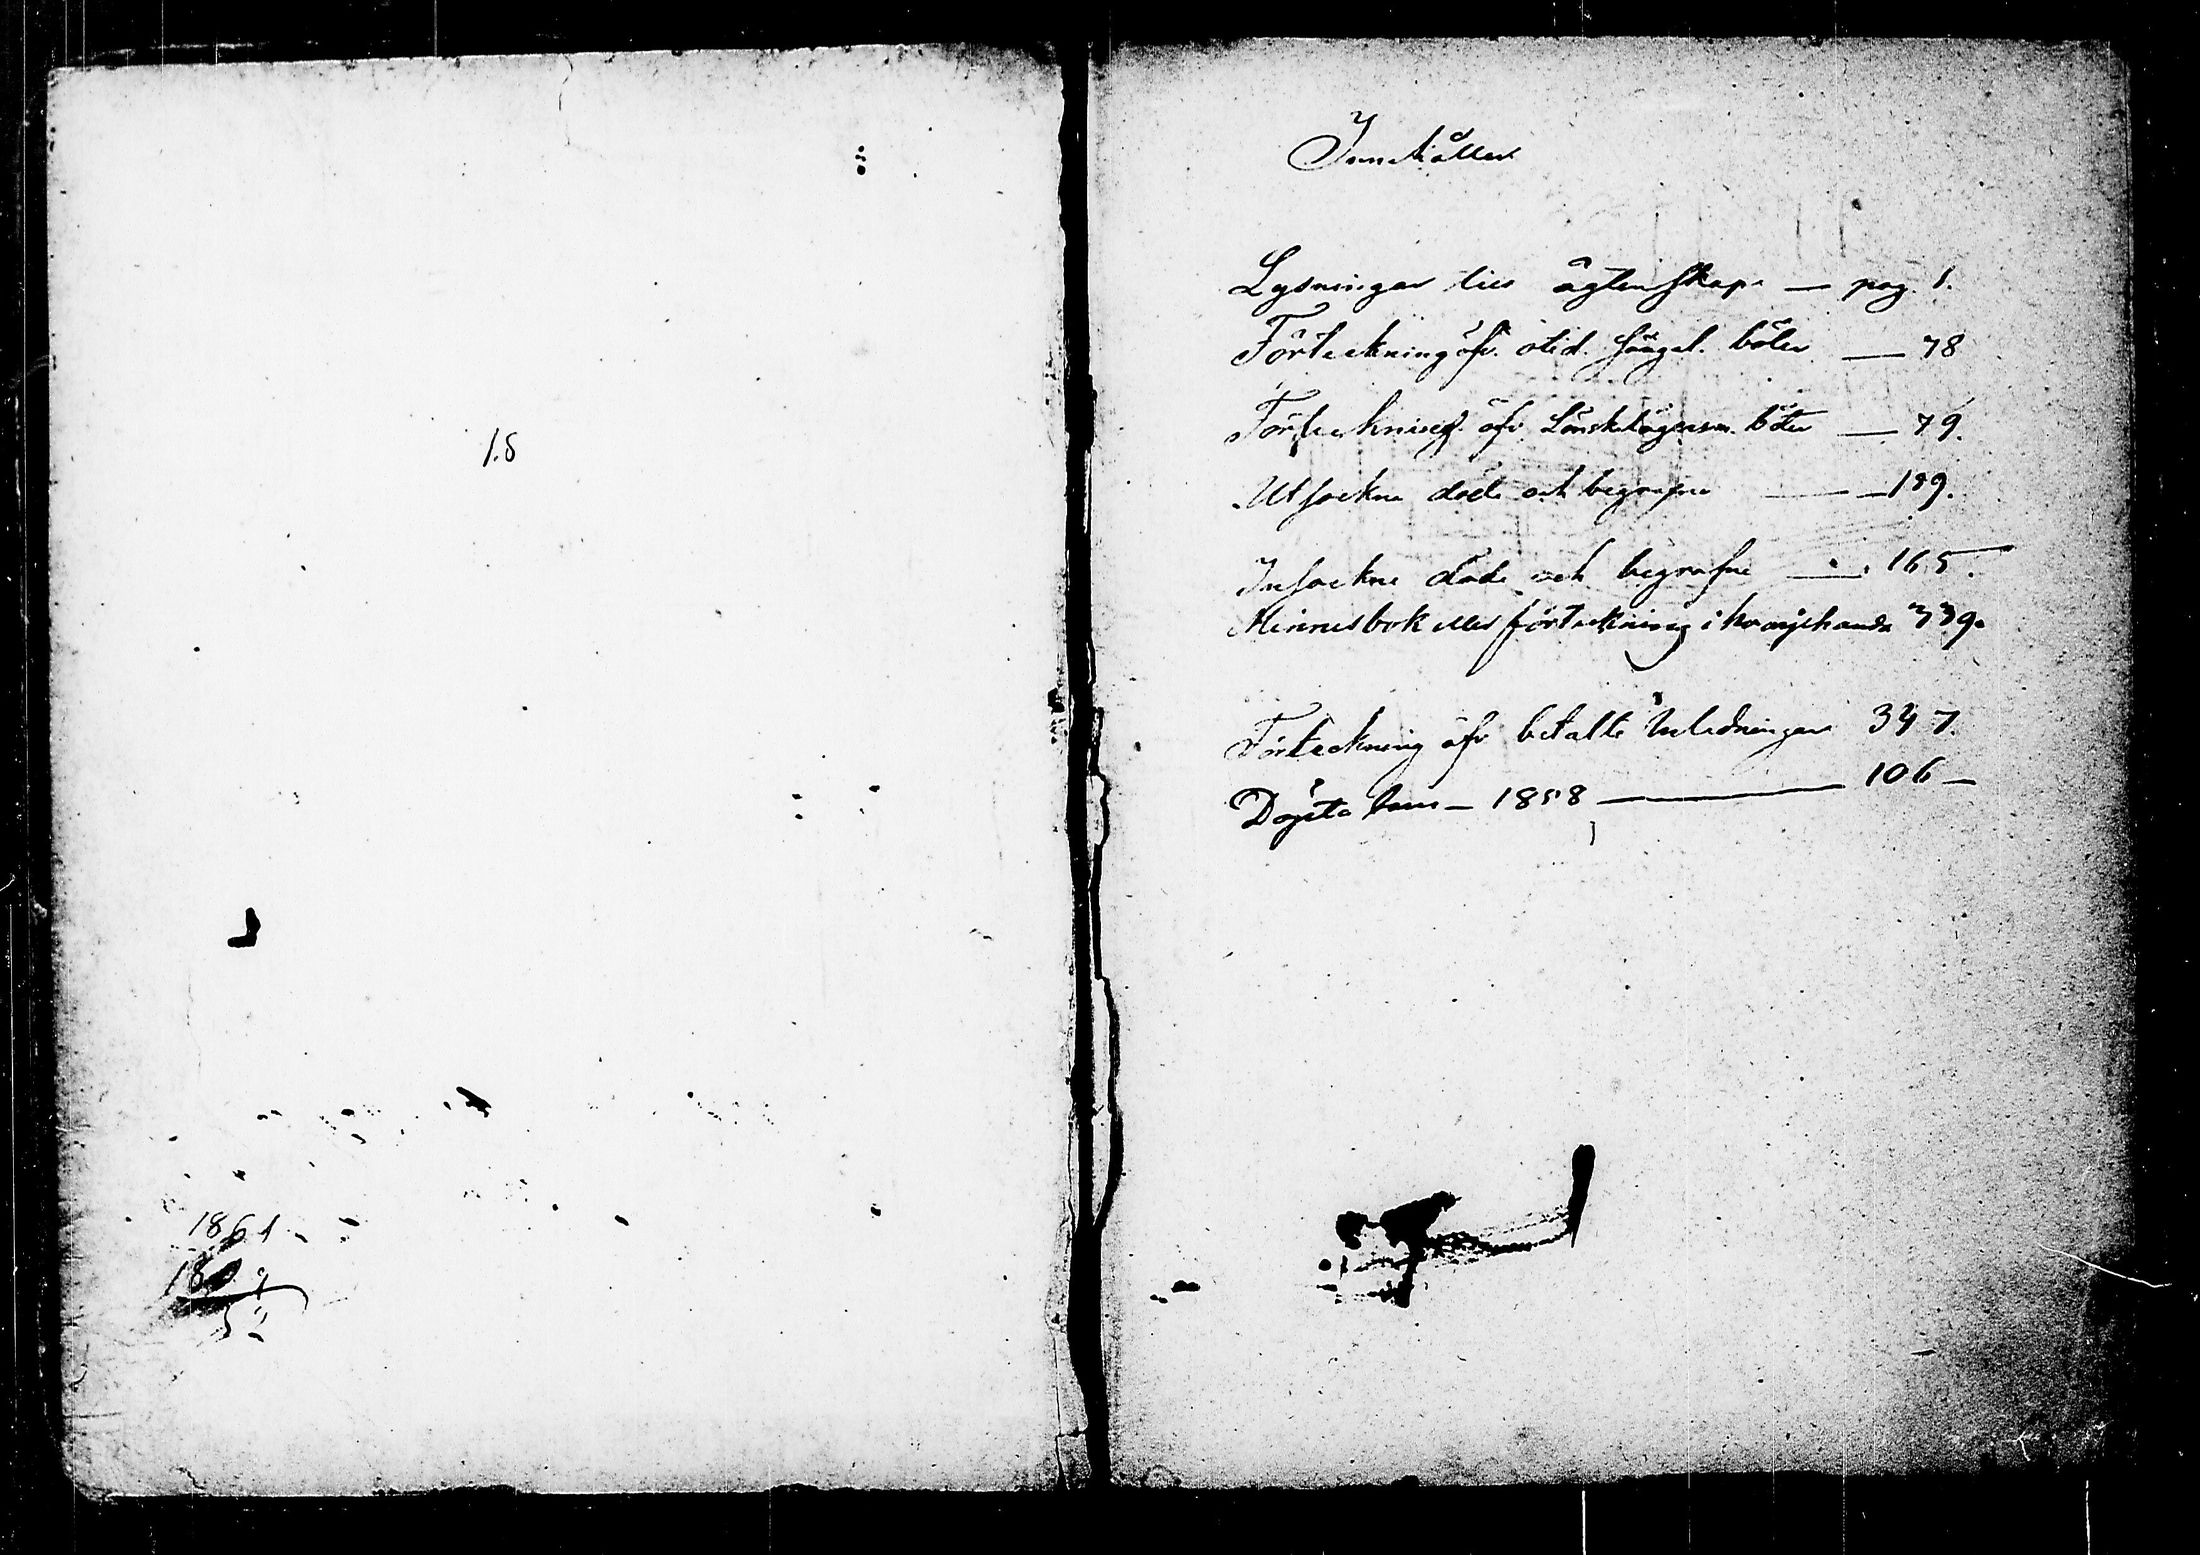 1.8
1861
18
52
Innehåller
Lysningar till ägtenskap — pag. 1.
Förteckning öfv. otid. sängel. böter — 78
Förteckning öfv Lönskelägersm. böter — 79.
Utsockne döde och begrafne — 159.
Insockne döde och begrafne — 165.
Minnesbok eller förteckning i 339.
Förteckning öfv betalte Inledningar 347.
Döpta barn — 1858 — 106 —